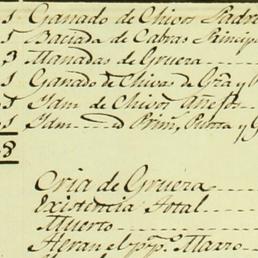 1 Ganado de Chivos Padre
5 Baciada de Cabras Princip
3 Manadas de Gruera
1 Ganado de Chivas de Gra y
5 Ydam de Chivos Añejos
1 Ydam de Prim, Puerta y G
8
Cria de Gruera
Existencia total
Muerto
Heran el pp.º Marzo